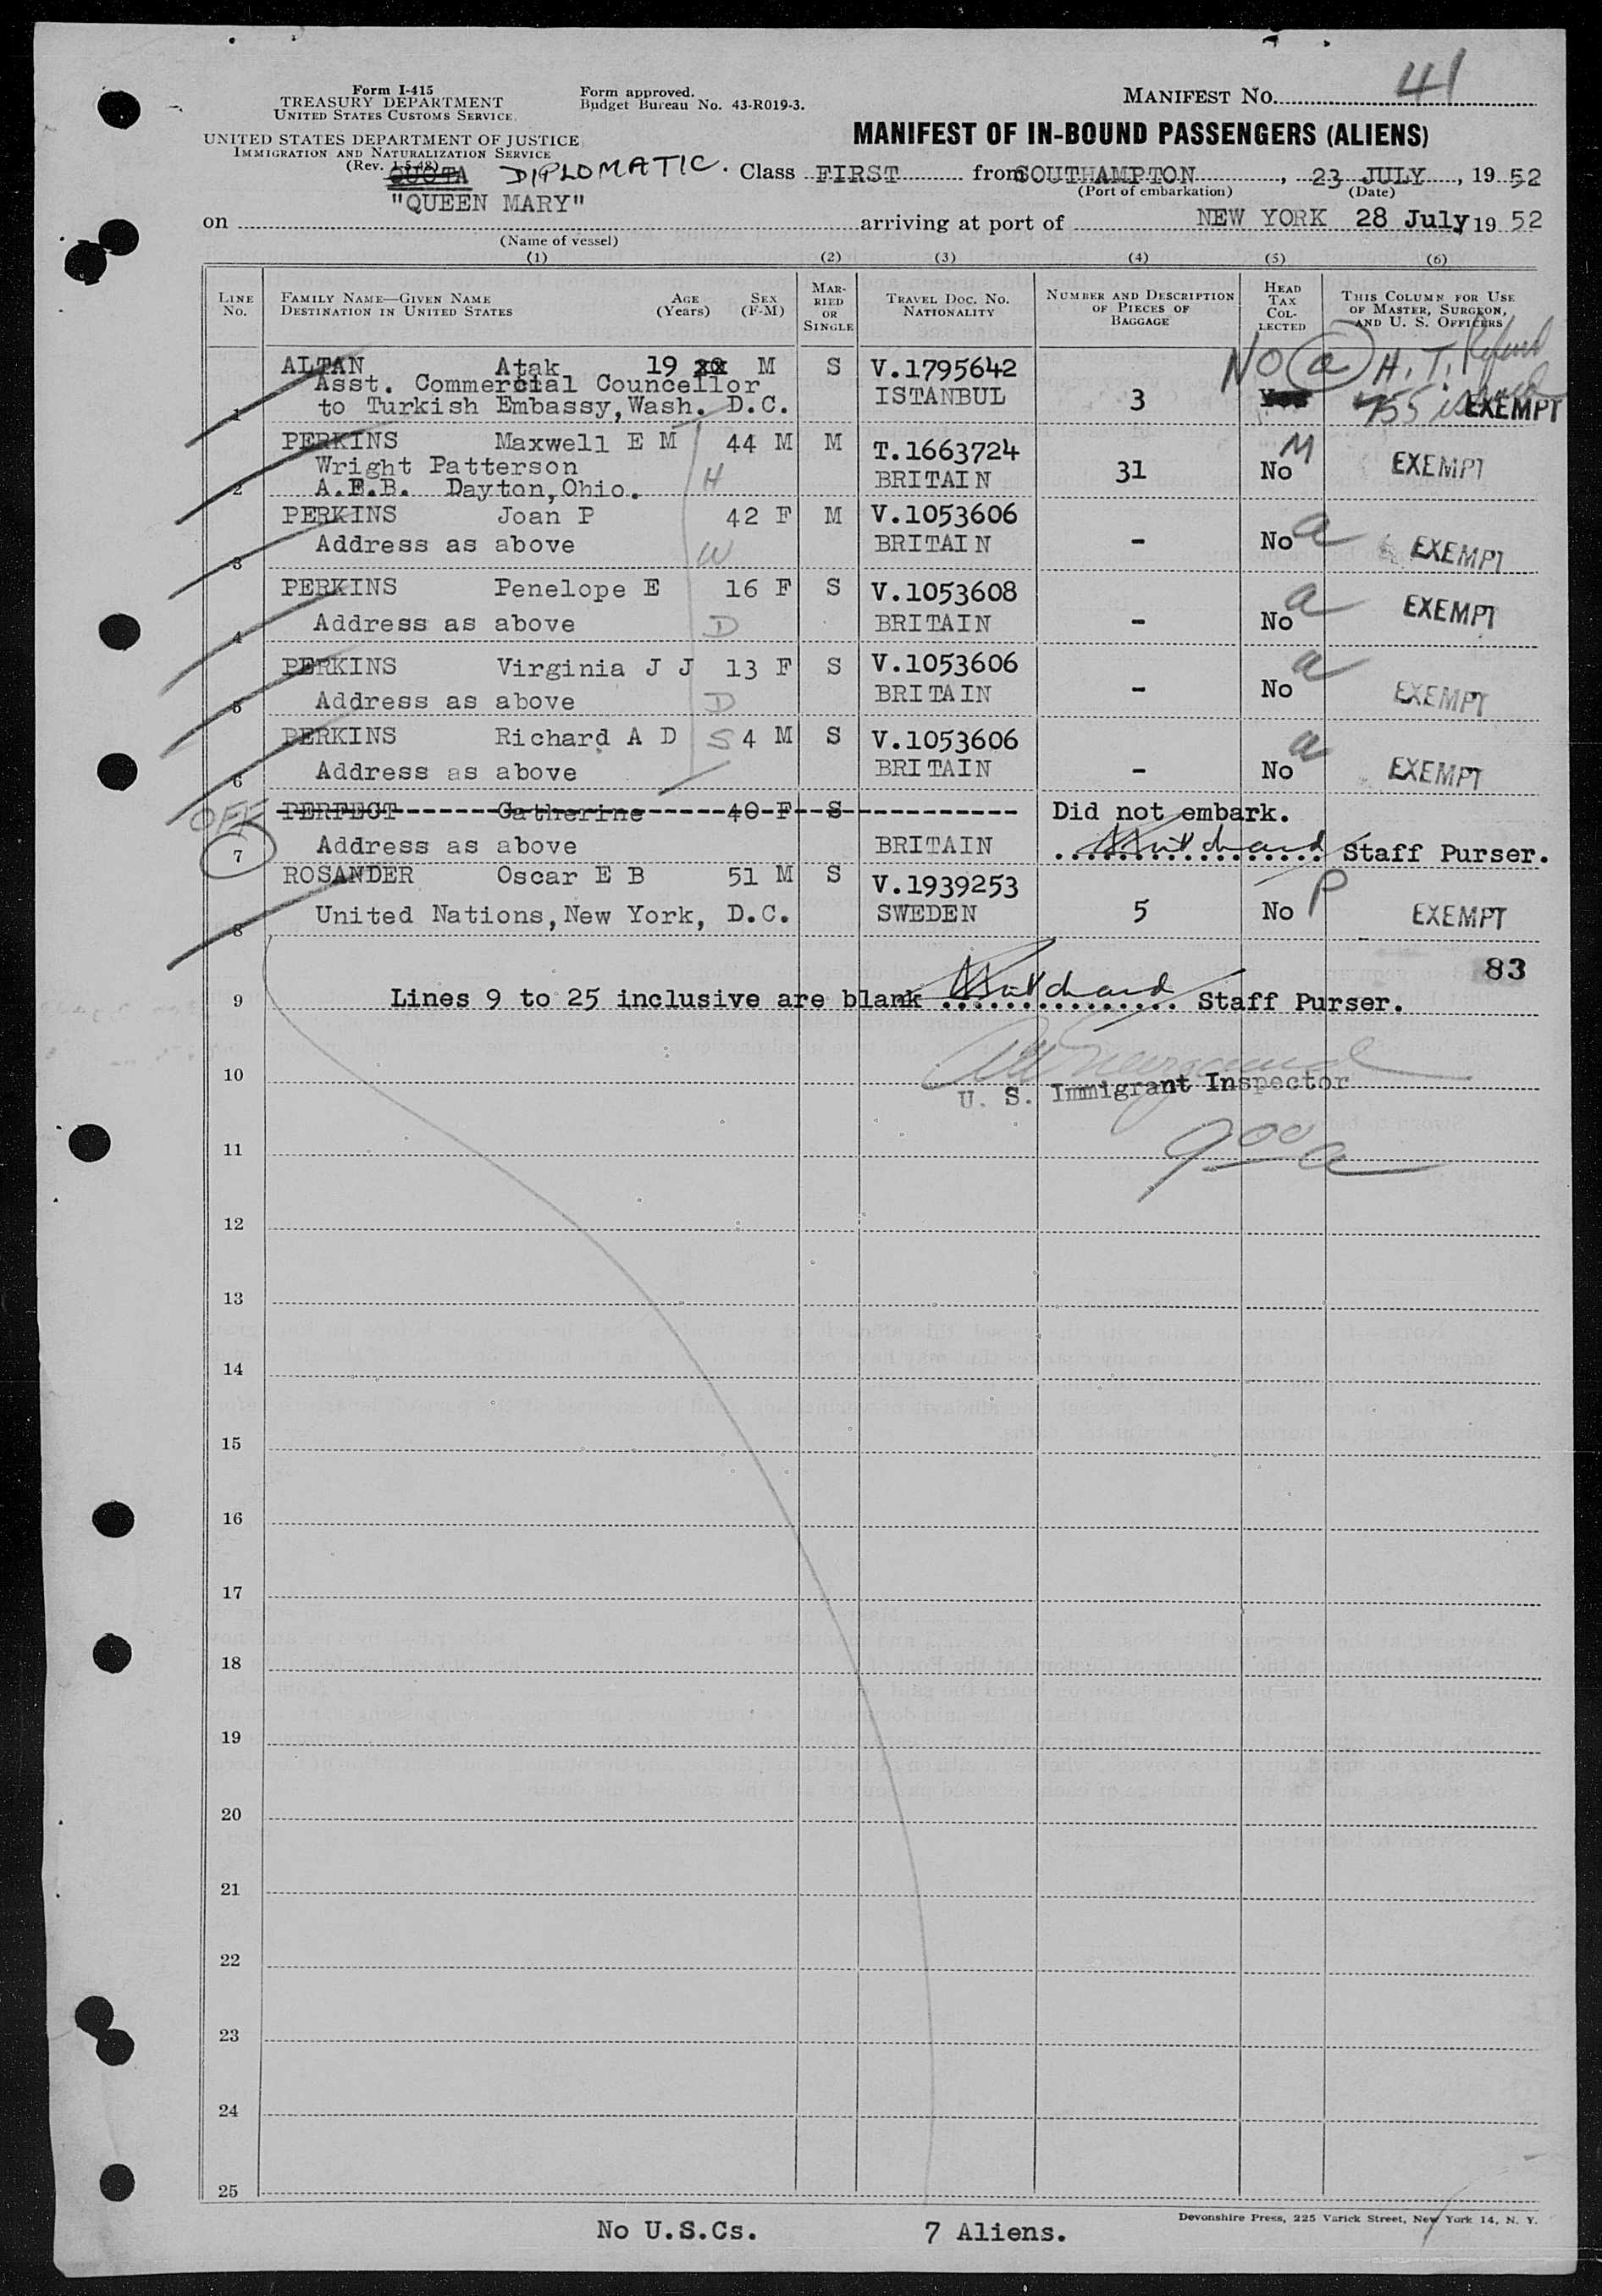 Form I-415
TREASURY DEPARTMENT
UNITED STATES CUSTOMS SERVICE
UNITED STATES DEPARTMENT OF JUSTICE
IMMIGRATION AND NATURALIZATION SERVICE
(Rev. 1-5-48)
Form approved.
Budget Bureau No. 43-R019-3.
MANIFEST NO. 41
MANIFEST OF IN-BOUND PASSENGERS (ALIENS)
QUOTA DIPLOMATIC. Class FIRST from SOUTHAMPTON, 23 JULY, 19 52
(Port of embarkation) (Date)
on "QUEEN MARY" arriving at port of NEW YORK 28 July 19 52
(Name of vessel)
(1) (2) (3) (4) (5) (6)
LINE NO. FAMILY NAME—GIVEN NAME DESTINATION IN UNITED STATES AGE (Years) SEX (F-M) MARRIED OR SINGLE TRAVEL DOC. NO. NATIONALITY NUMBER AND DESCRIPTION OF PIECES OF BAGGAGE HEAD TAX COLLECTED THIS COLUMN FOR USE OF MASTER, SURGEON, AND U. S. OFFICERS
ALTAN Atak 19 M S V.1795642 NO a H. T. Refund
Asst. Commercial Councellor ISTANBUL 3 Yes issued
1 to Turkish Embassy, Wash. D.C. EXEMPT
PERKINS Maxwell E M 44 M M T.1663724 M
Wright Patterson BRITAIN 31 No EXEMPT
2 A.E.B. Dayton, Ohio. H
PERKINS Joan P 42 F M V.1053606 a
3 Address as above W BRITAIN - No EXEMPT
PERKINS Penelope E 16 F S V.1053608 a EXEMPT
4 Address as above D BRITAIN - No
PERKINS Virginia J J 13 F S V.1053606 a
5 Address as above D BRITAIN - No EXEMPT
PERKINS Richard A D S 4 M S V.1053606 a
6 Address as above BRITAIN - No EXEMPT
OFF PERFECT Catherine 40 F S Did not embark.
7 Address as above BRITAIN Staff Purser.
ROSANDER Oscar E B 51 M S V.1939253 P
8 United Nations, New York, D.C. SWEDEN 5 No EXEMPT
83
9 Lines 9 to 25 inclusive are blank Staff Purser.
10
U. S. Immigrant Inspector
11 9 00 a
12
13
14
15
16
17
18
19
20
21
22
23
24
25
Devonshire Press, 225 Varick Street, New York 14, N. Y.
No U.S.Cs. 7 Aliens.